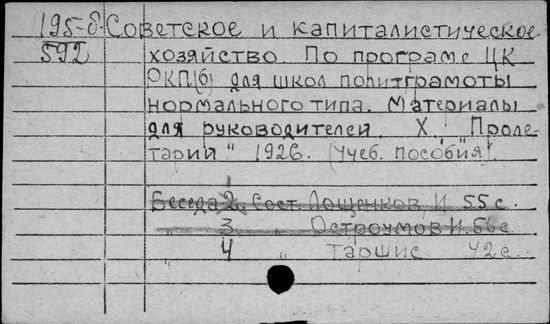 195-б Советское и капиталистическое
592 хозяйство. По програме ЦК
РКП(б) для школ политграмоты
нормального типа. Материалы
для руководителей. Х. „Проле-
тарий" 1926. (Учеб. пособия).
1
Беседа 2. Сост. Лощенков, И. 55 с.
„ 3 „ Остроумов И. 56 с
„ 4 „ Таршис 42 с.